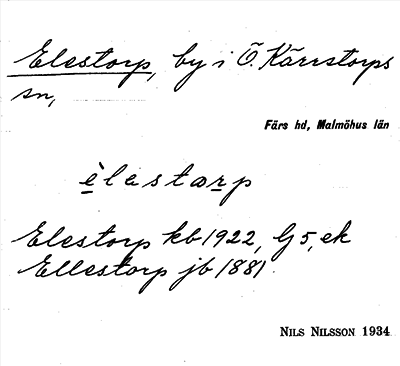 Elestorp, by i Ö. Kärrstorps
sn,
Färs hd, Malmöhus län
èlestarp
Elestorp kb 1922, G5, ek
Ellestorp jb 1881
NILS NILSSON 1934